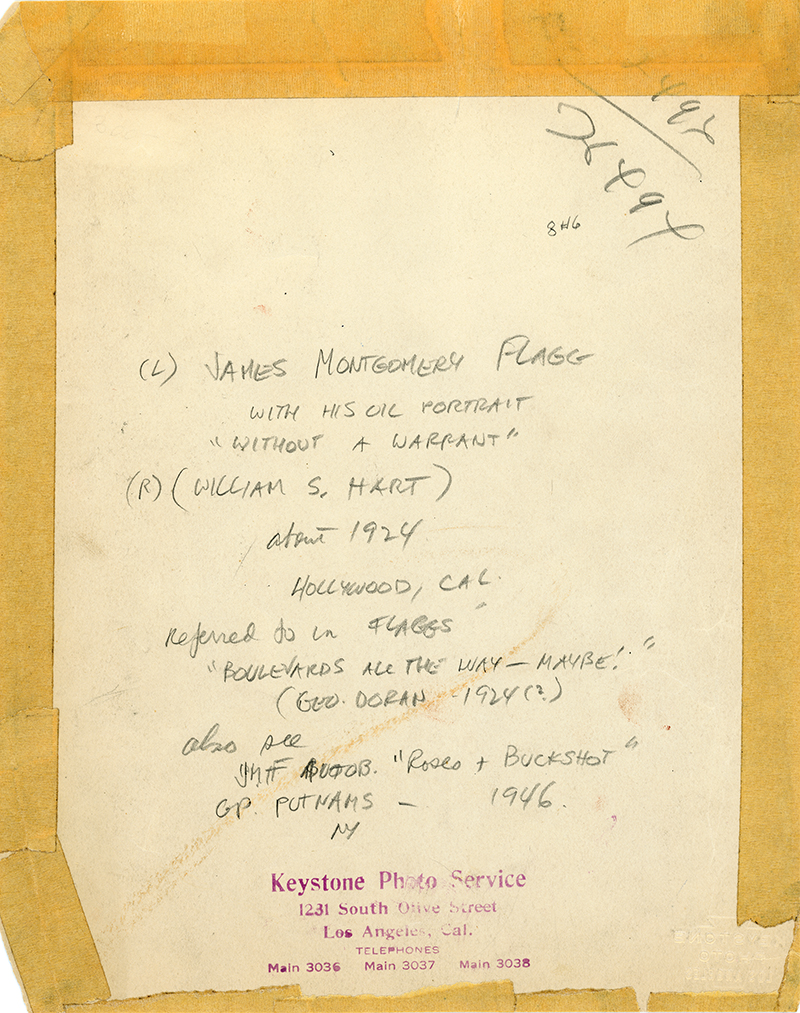 492
26494
8 H6
(L) JAMES MONTGOMERY FLAGG
WITH HIS OIL PORTRAIT
"WITHOUT A WARRANT"
(R) (WILLIAM S. HART)
about 1924
HOLLYWOOD, CAL.
Referred to in FLAGGS
"BOULEVARDS ALL THE WAY — MAYBE!"
(GEO. DORAN - 1924(?)
also see
JMF AUTOB. "Roses + BUCKSHOT"
GP. PUTNAMS — 1946.
NY
Keystone Photo Service
1231 South Olive Street
Los Angeles, Cal.
TELEPHONES
Main 3036 Main 3037 Main 3038